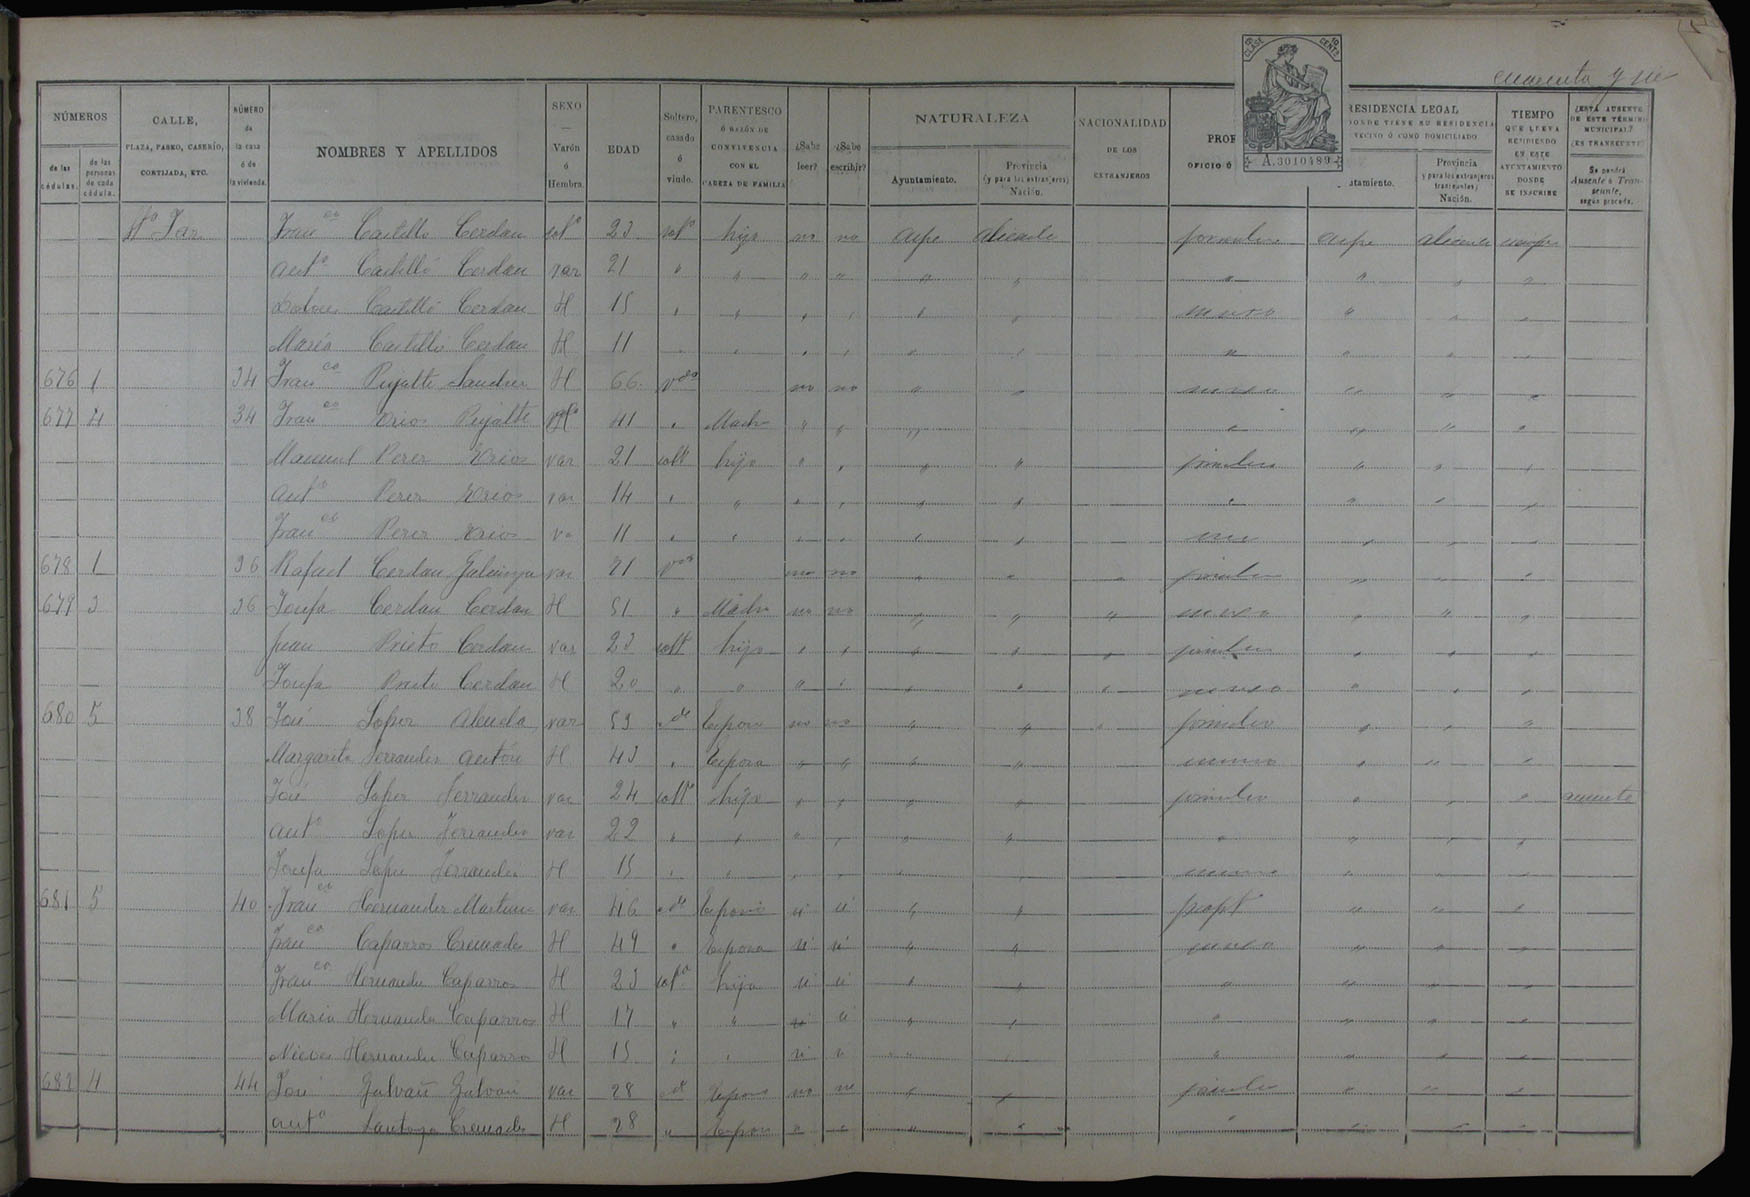 cuarenta y
9ª CLASE 10 CENTS
A.3010489
NÚMEROS de las cédulas. de las personas de cada cédula.
CALLE, PLAZA, PASEO, CASERÍO, CORTIJADA, ETC.
NÚMERO de la casa ó de la vivienda.
NOMBRES Y APELLIDOS
SEXO — Varón ó Hembra.
EDAD
Soltero, casado ó viudo.
PARENTESCO Ó RAZÓN DE CONVIVENCIA CON EL CABEZA DE FAMILIA
¿Sabe leer?
¿Sabe escribir?
NATURALEZA
Ayuntamiento.
Provincia (y para los extranjeros) Nación.
NACIONALIDAD DE LOS EXTRANJEROS
PROF OFICIO Ó
RESIDENCIA LEGAL DONDE TIENE SU RESIDENCIA VECINO Ó COMO DOMICILIADO.
utamiento.
Provincia y para los extranjeros transeuntes) Nación.
TIEMPO QUE LLEVA RESIDIENDO EN ESTE AYUNTAMIENTO DONDE SE INSCRIBE
¿ESTÁ AUSENTE DE ESTE TÉRMINO MUNICIPAL? ¿ES TRANSEUNTE? Se pondrá Ausente ó Transeunte, según proceda.
Franco Castelló Cerdan solto 23 solto hijo no no aspe alicante jornalero aspe alicante siempre
Anto Castelló Cerdan var 21 " " " " " " " " " "
Dolores Castelló Cerdan H 15 " " " " " " su sexo " " "
María Castelló Cerdan H 11 " " " " " " " " " "
676 1 34 Franca Pujalte Sanchez H 66 vda no no " " su sexo " " "
677 4 34 Franca Erios Pujalte H 41 " Madre " " " " " " "
Manuel Perez Erios var 21 solt hijo " " " " jornalero " " "
Anto Perez Erios var 14 " " " " " " " " " "
Franco Perez Erios va 11 " " " " " " " " "
678 1 36 Rafael Cerdan var 71 vdo no no " " " jornalero " "
679 3 36 Josefa Cerdan Cerdan H 51 " Madre no no " " " su sexo " " "
Juan Prieto Cerdan var 23 solt hijo " " " " " jornalero " " "
Josefa Prieto Cerdan H 20 " " " " " " " su sexo " " "
680 5 38 José Lopez Alenda var 53 do Esposo no no " " " jornalero " " "
Margarita Ferrandez Antón H 43 " Esposa " " " " " " "
José Lopez Ferrandez var 24 solto hijo " " " " jornalero " " " ausente
Anto Lopez Ferrandez var 22 " " " " " " " " " "
Josefa Lopez Ferrandez H 15 " " " " " " " " "
681 5 40 Franco Hernandez Martinez var 46 do Esposo si si " " propt " " "
Franca Caparros Cremades H 49 " Esposa si si " " su sexo " " "
Franca Hernandez Caparros H 23 solta hija si si " " " " " "
María Hernandez Caparros H 17 " " si si " " " " " "
Nieves Hernandez Caparros H 15 " " si si " " " " "
682 4 44 José Galvañ Galvañ var 28 do Esposo no no " " jornalero " " "
Anta Cremades H 28 " Esposa " " " " " " " "